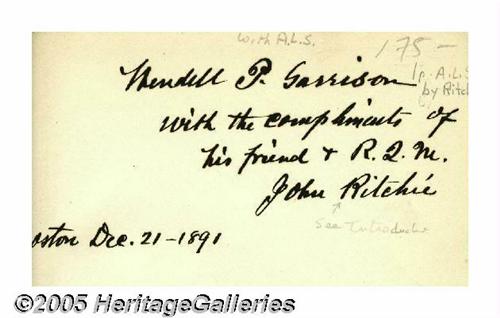 with A.L.S.
175-
Wendell P. Garrison
1p. A.L.S
by Ritch
with the compliments of
his friend & R. Q. M.
John Ritchie
See Introduct
oston Dec. 21-1891
©2005 HeritageGalleries